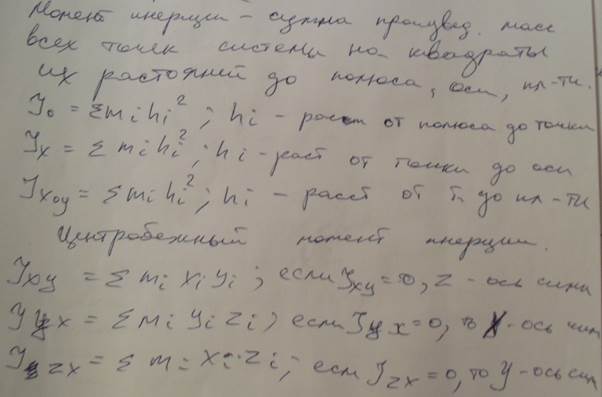 Момент инерции – сумма произвед. масс
всех точек системы на квадраты
их растояний до полюса, оси, пл-ти.
J₀ = Σmᵢhᵢ²; hᵢ – расст от полюса до точки
Jₓ = Σmᵢhᵢ²; hᵢ – раст от точки до оси
Jₓₒᵧ = Σmᵢhᵢ²; hᵢ – расст от т. до пл-ти
Центробежный момент инерции.
Jxy = Σ mᵢ xᵢ yᵢ; если Jxy = 0, z – ось сим
Jyx = Σ mᵢ yᵢ zᵢ; если Jyx = 0, то – ось сим
Jzx = Σ mᵢ xᵢ zᵢ; если Jzx = 0, то y – ось сим